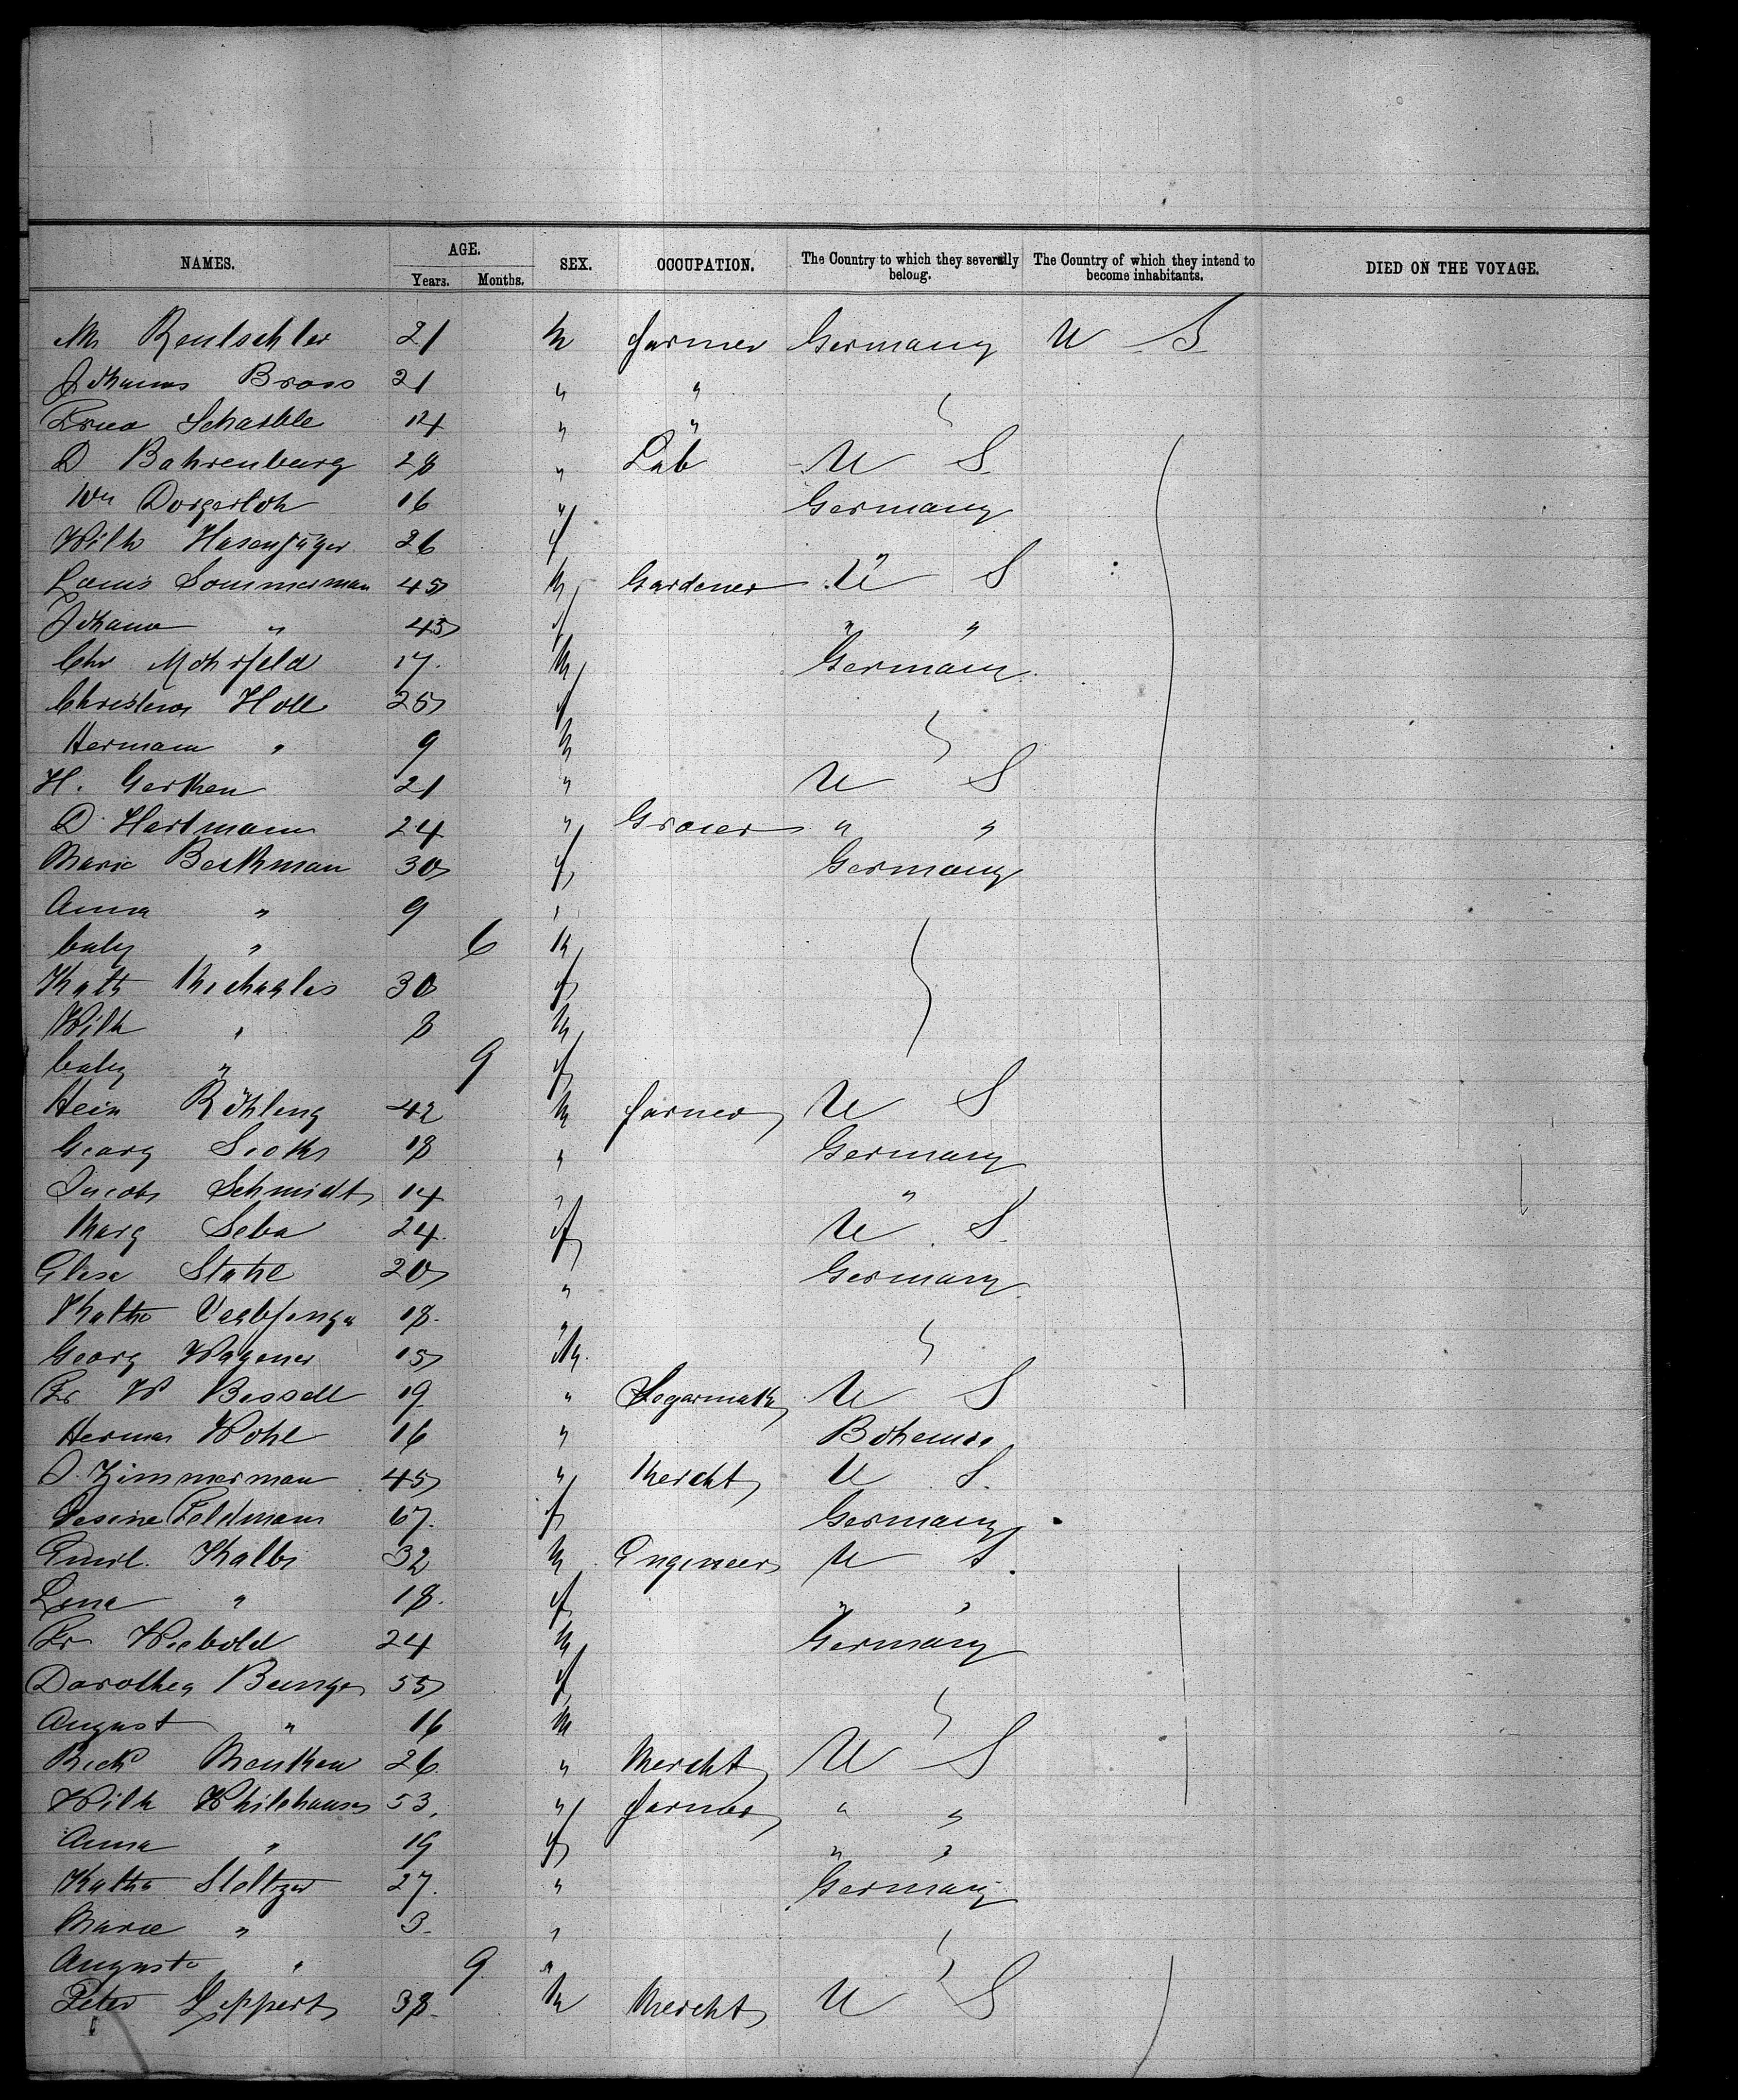 NAMES. AGE. Years. Months. SEX. OCCUPATION. The Country to which they severally belong. The Country of which they intend to become inhabitants. DIED ON THE VOYAGE.
M Rentschler 21 m farmer Germany U S
Johannes Bross 21 " "
Schaible 14 " "
D Bahrenburg 28 " Lab U S
Wm Dorgerloh 16 " Germany
Wilh Hasenjäger 26 f "
Louis Sommerman 45 m Gardener U S
Johana " 45 f " "
Chr Mohrfeld 17. m Germany
Holl 25 f
Hermann " 9 m
H. Gerken 21 " U S
D Hartmann 24 " Grocer " "
Marie Beckman 30 f Germany
Anna " 9 "
baby " 6 m
Kath Michaelis 30 f
Wilh " 8 m
baby " 9 f
Hein Röhling 42 m farmer U S
Georg 18 " Germany
Jacob Schmidt 14 " "
Marg Seba 24. f U S.
Elise Stahl 20 " Germany
Kath 18. "
Georg Wagener 15 m.
Fr W Bessell 19 " Segarmaker U S
Herman Wohl 16 " Bohemia
J. Zimmerman 45 " Mercht U S.
Gesine Feldmann 67. f Germany
Emil Kalb 32 m Engineer U S.
Lena " 18. f " "
Fr Wiebold 24 m Germany
Dorothea Bunge 55 f
August " 16 m
Menken 26. " Mercht U S
Wilh 53. " farmer " "
Anna " 19 f " "
Kath Steltzer 27. " Germany
Marie " 3. "
Auguste " 9. "
Peter Lippert 38. m Mercht U S